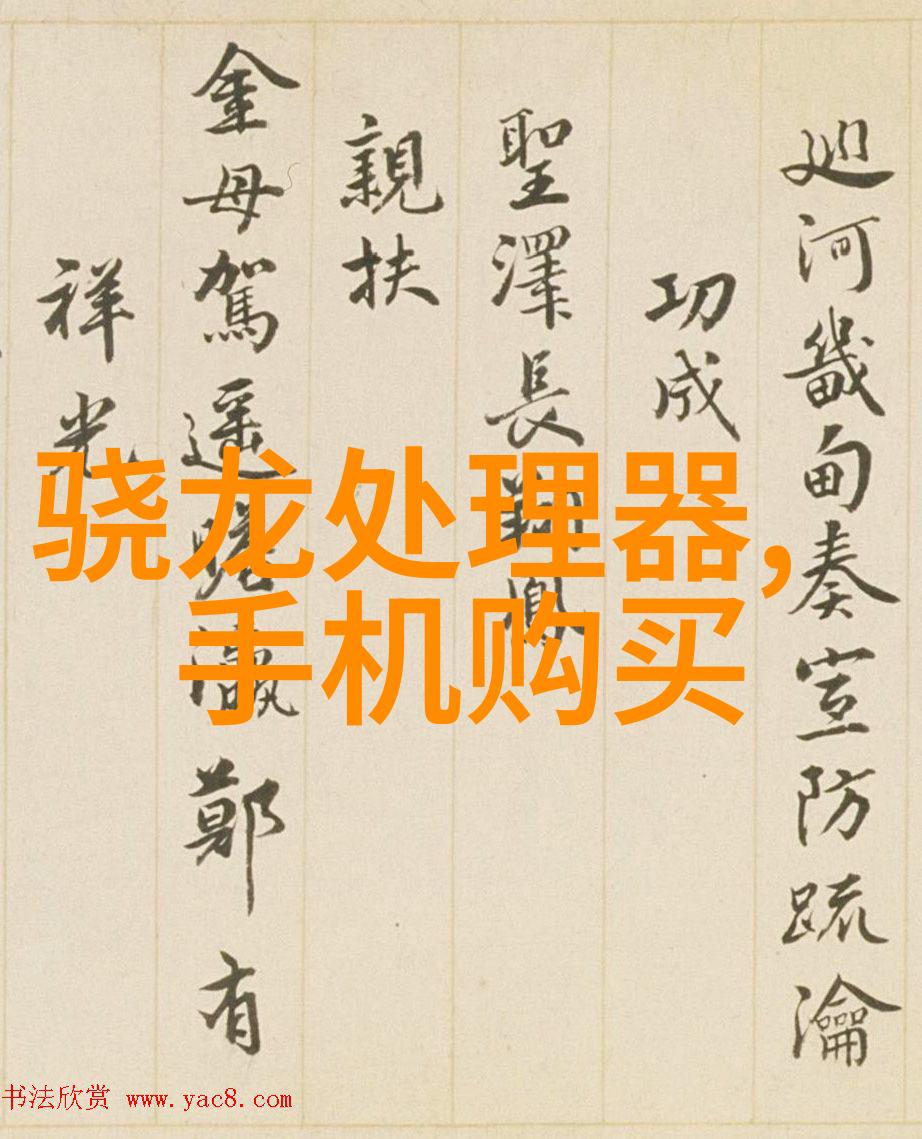 巡河畿甸奏宣防疏瀹
功成
聖澤長翔鳳
親扶
金母駕遥瞻瀛鄭有
祥光
骁龙处理器,
手机购买
书法欣赏 www.yac8.com